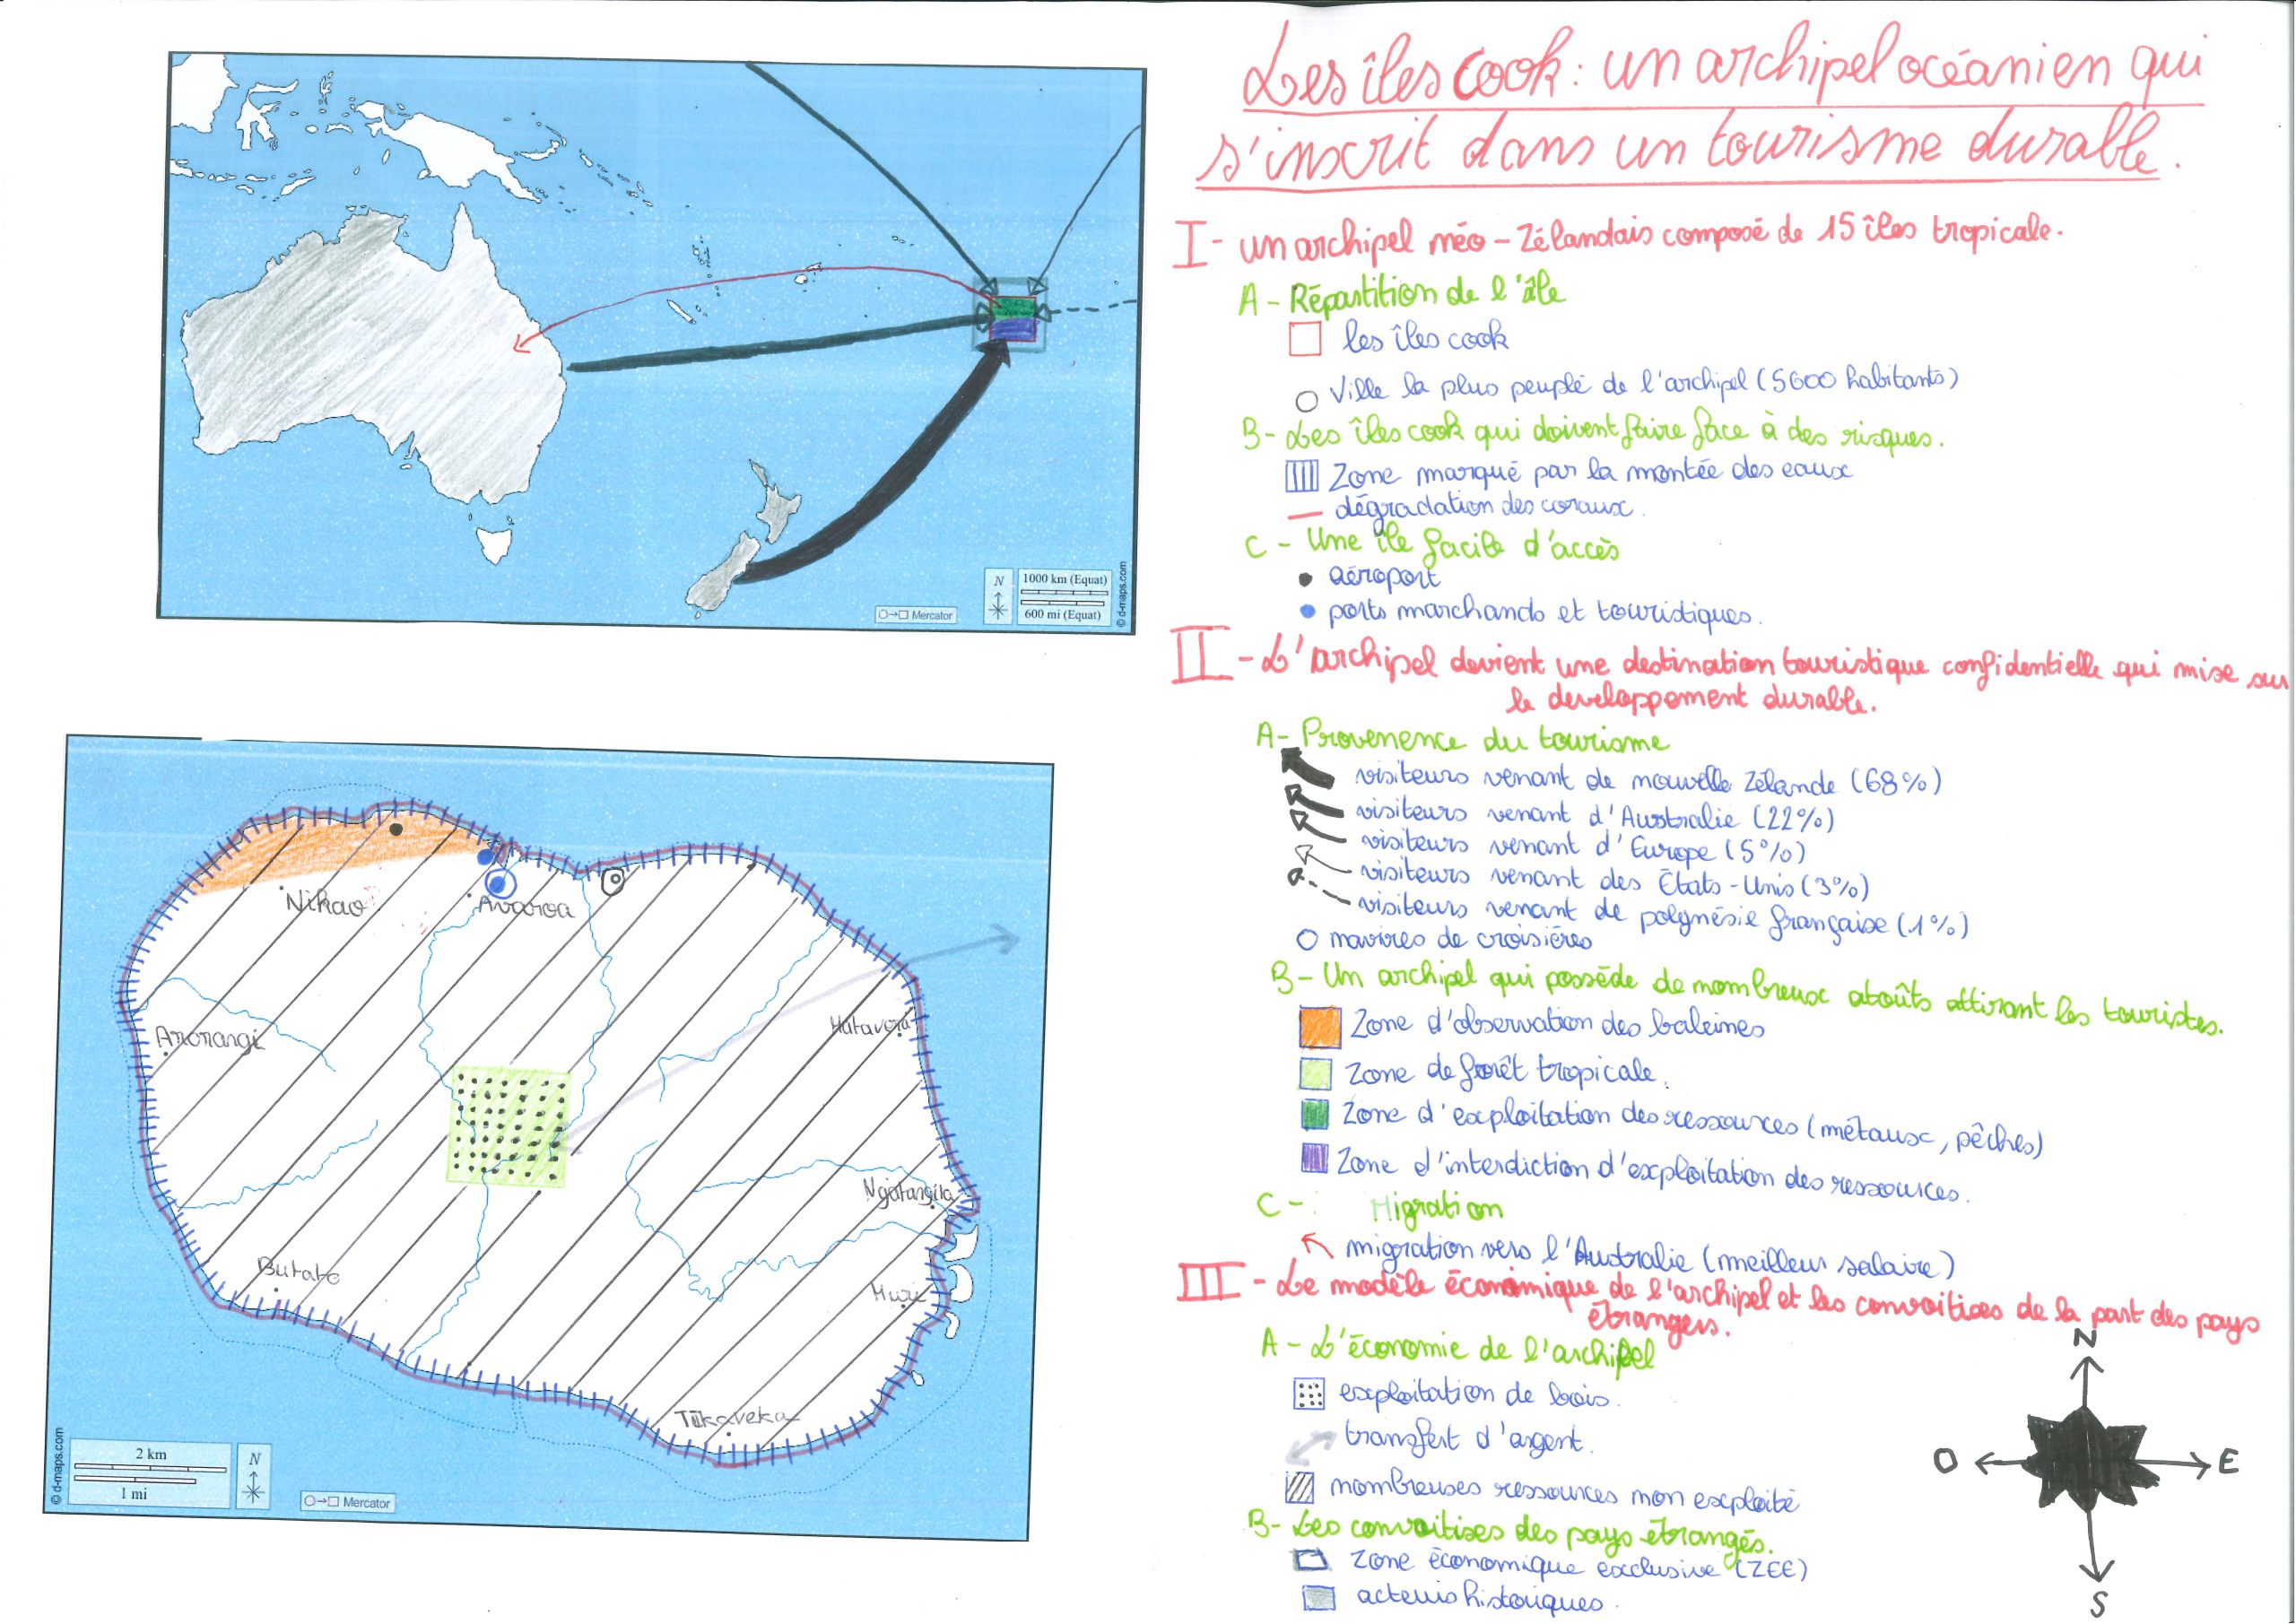 Les îles cook : un archipel océanien qui
s'inscrit dans un tourisme durable.
I - un archipel néo-Zélandais composé de 15 îles tropicale.
A - Répartition de l'île
les îles cook
Ville la plus peuplé de l'archipel (5600 habitants)
B - Les îles cook qui doivent faire face à des risques.
Zone marqué par la montée des eaux
dégradation des coraux.
C - Une île facile d'accès
aéroport
ports marchands et touristiques.
II - L'archipel devient une destination touristique confidentielle qui mise sur
le developpement durable.
A - Provenence du tourisme
visiteurs venant de nouvelle Zélande (68%)
visiteurs venant d'Australie (22%)
visiteurs venant d'Europe (5%)
visiteurs venant des États-Unis (3%)
visiteurs venant de polynésie française (1%)
navires de croisières
B - Un archipel qui possède de nombreux atoûts attirant les touristes.
Zone d'observation des baleines
Zone de forêt tropicale.
Zone d'exploitation des ressources (métaux, pêches)
Zone d'interdiction d'exploitation des ressources.
C - Migration
migration vers l'Australie (meilleur salaire)
III - Le modèle économique de l'archipel et les convoitises de la part des pays
étrangers.
A - L'économie de l'archipel
exploitation de bois.
transfert d'argent.
nombreuses ressources non exploité
B - Les convoitises des pays étrangés.
Zone économique exclusive (ZEE)
acteurs historiques.
N
O
E
S
Mercator
N
1000 km (Equat)
600 mi (Equat)
© d-maps.com
Nikao
Avaroa
Arorangi
Matavera
Ngatangiia
Butato
Muri
Tikaveka
© d-maps.com
2 km
1 mi
N
Mercator